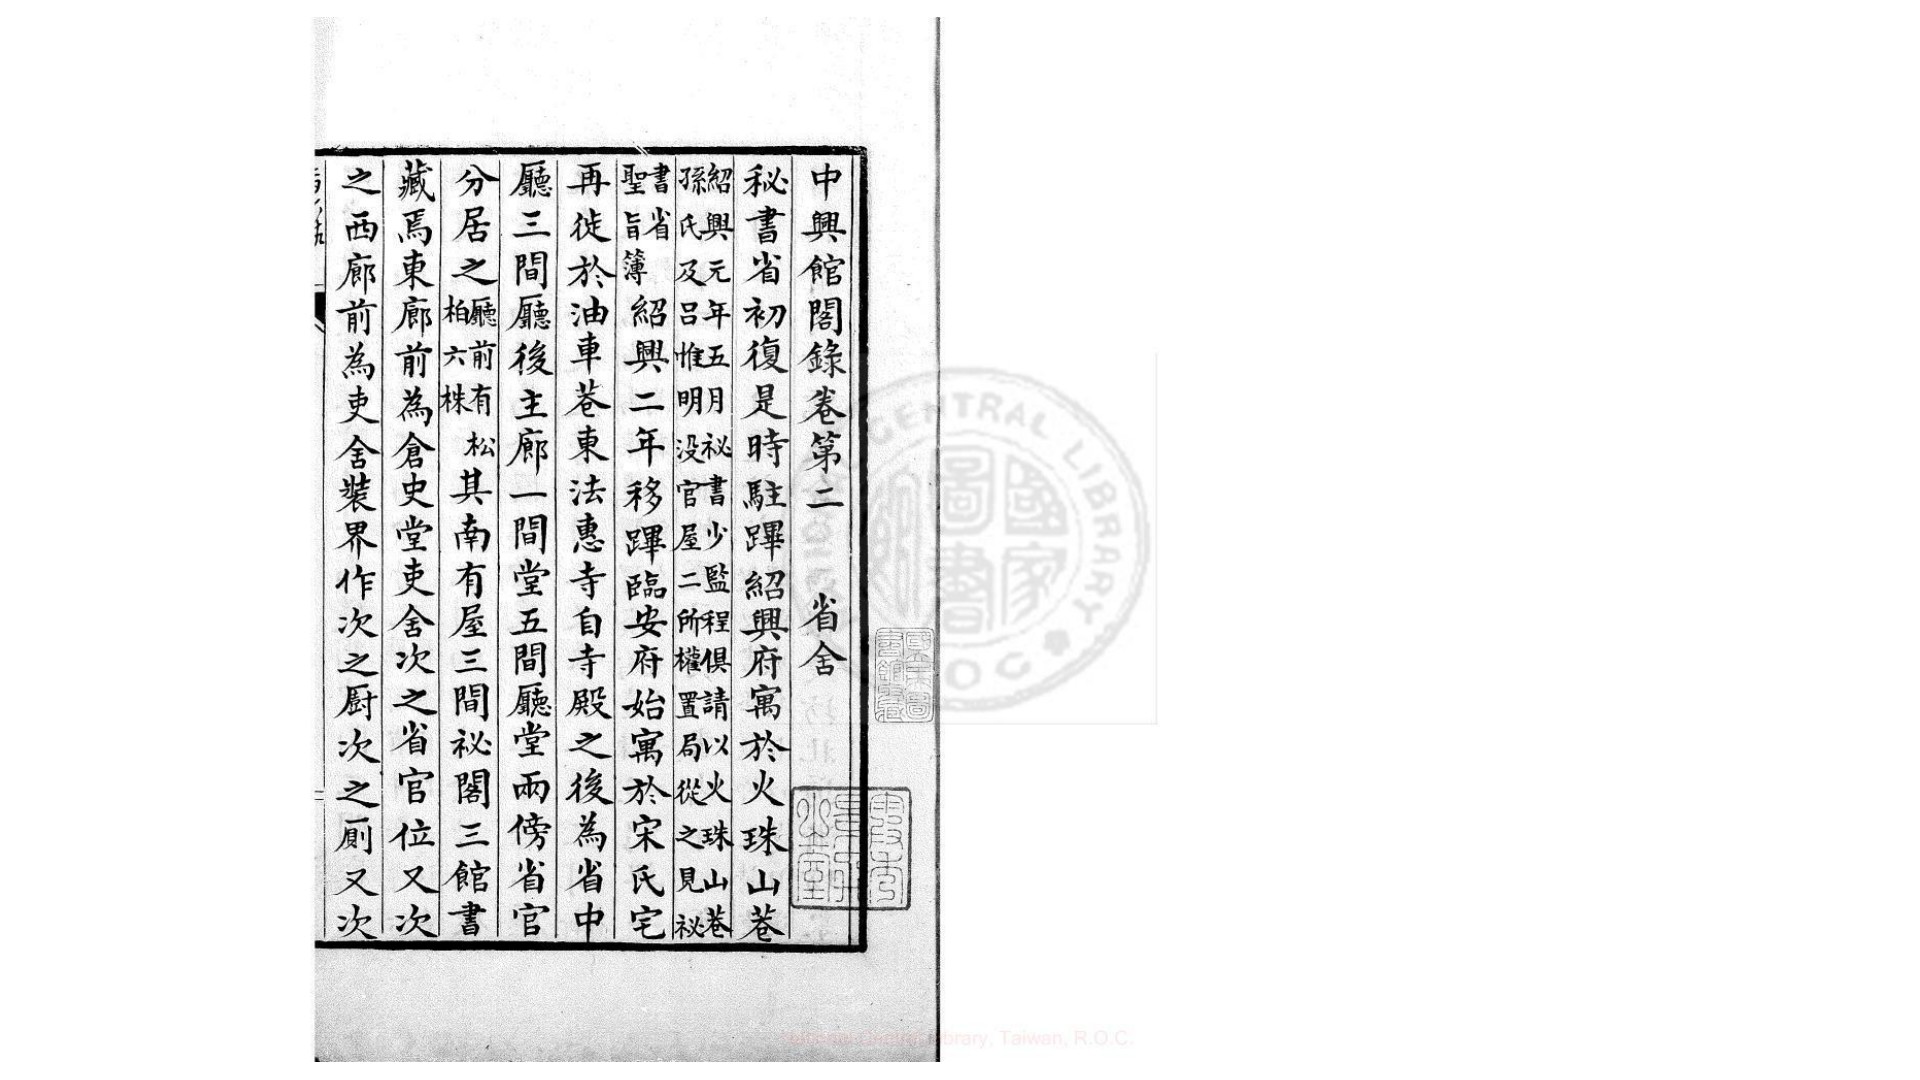 中興館閣錄卷第二　省舍
秘書省初復是時駐蹕紹興府寓於火珠山巷
紹興元年五月祕書少監程俱請以火珠山巷
孫氏及呂惟明没官屋二所權置局從之見祕
書省
聖旨簿
紹興二年移蹕臨安府始寓於宋氏宅
再徙於油車巷東法惠寺自寺殿之後為省中
廳三間廳後主廊一間堂五間廳堂兩傍省官
分居之
廳前有松
柏六株
其南有屋三間祕閣三館書
藏焉東廊前為倉史堂吏舍次之省官位又次
之西廊前為吏舍裝界作次之厨次之厠又次
CENTRAL LIBRARY
R.O.C
國家圖書館
National Central Library, Taiwan, R.O.C.